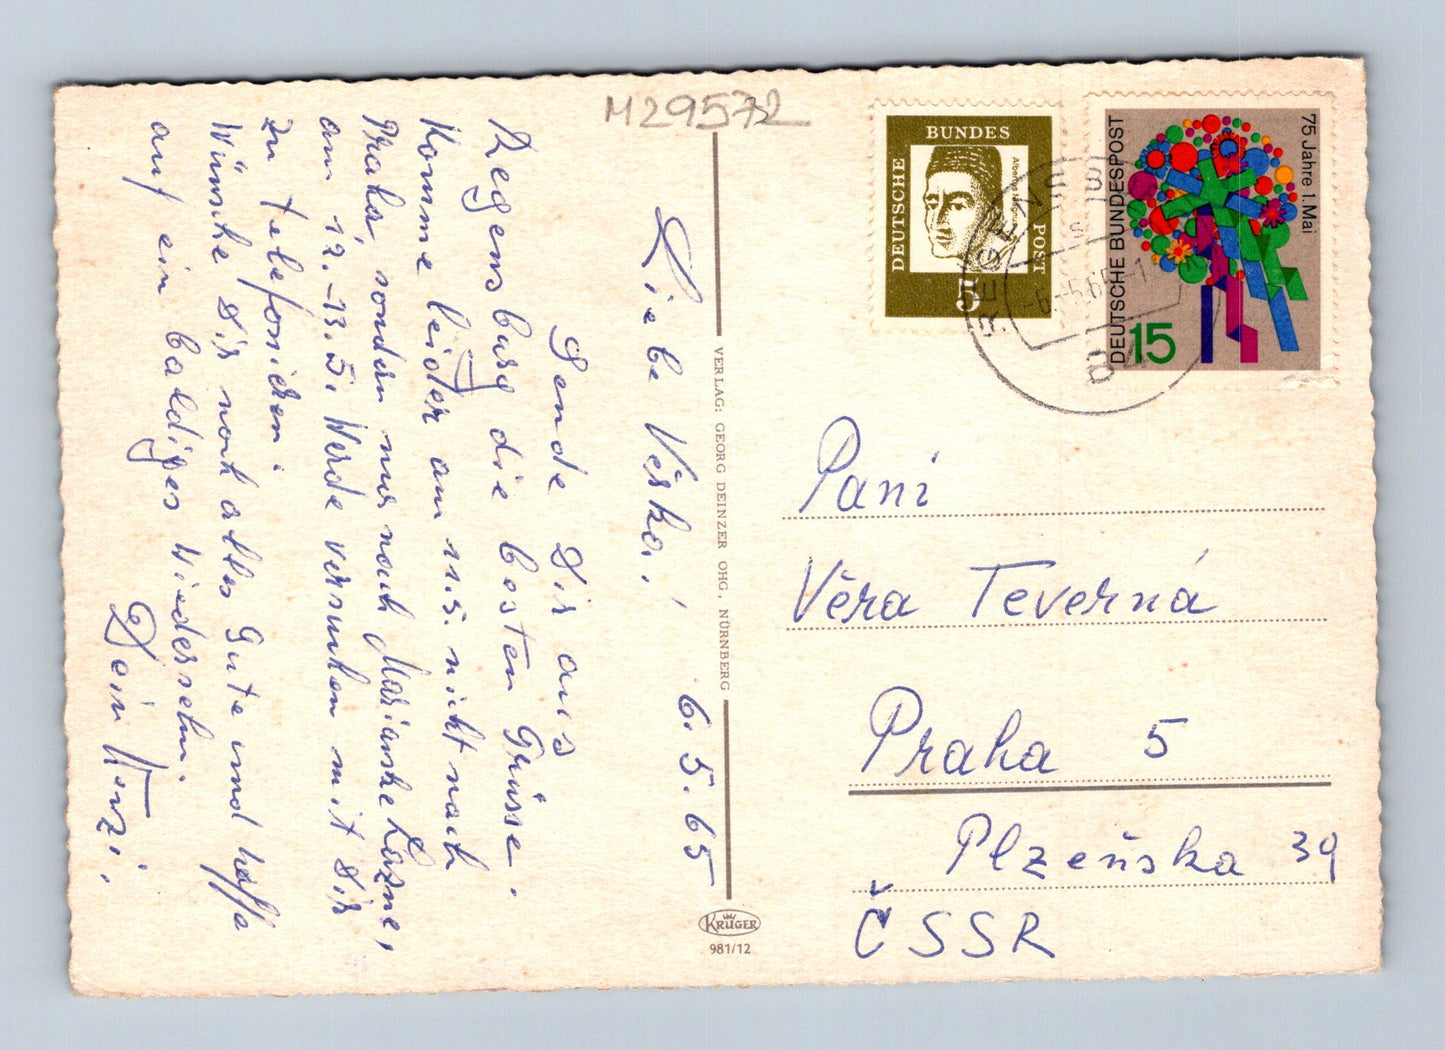 M29572
Liebe Věrko! 6.5.65
Sende Dir aus
Regensburg die besten Grüsse.
Komme leider am 11.5. nicht nach
Praha, sondern nur nach Marianske Lazne,
am 12.-13.5. Werde versuchen mit Dir
zu telefonieren.
Wünsche Dir noch alles Gute und hoffe
auf ein baldiges Wiedersehn.
Dein
VERLAG: GEORG DEINZER OHG., NÜRNBERG
KRÜGER
981/12
DEUTSCHE BUNDES POST
Albertus Magnus
5
DEUTSCHE BUNDESPOST
75 Jahre 1. Mai
15
REGENSBURG
-6.-5.65-1
Pani
Věra Teverná
Praha 5
Plzeňska 39
ČSSR